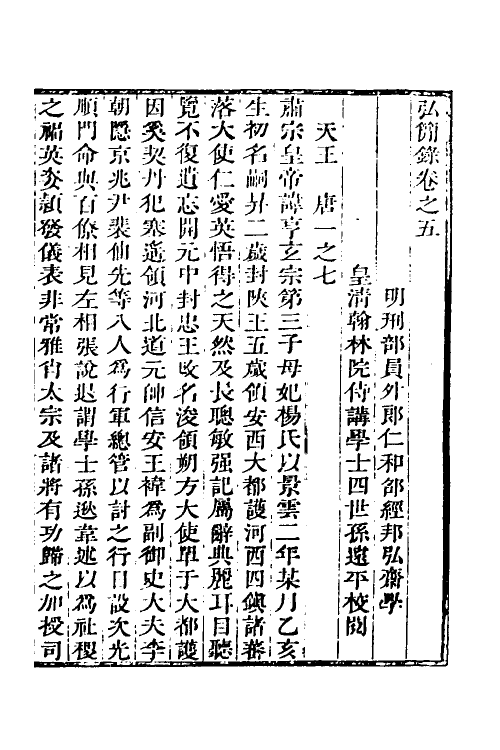 弘簡錄卷之五
明刑部員外郎仁和邵經邦弘齋學
皇清翰林院侍講學士四世孫遠平校閱
天王　唐一之七
肅宗皇帝諱亨玄宗第三子母妃楊氏以景雲二年某月乙亥
生初名嗣昇二歲封陝王五歲領安西大都護河西四鎮諸蕃
落大使仁愛英悟得之天然及長聰敏强記屬辭典麗耳目聽
覽不復遺忘開元中封忠王改名浚領朔方大使單于大都護
因奚契丹犯塞遙領河北道元帥信安王褘為副御史大夫李
朝隱京兆尹裴伷先等八人為行軍總管以討之行日設次光
順門命與百僚相見左相張說退謂學士孫逖韋述以為社稷
之福英姿頴發儀表非常雅肖太宗及諸將有功歸之加授司